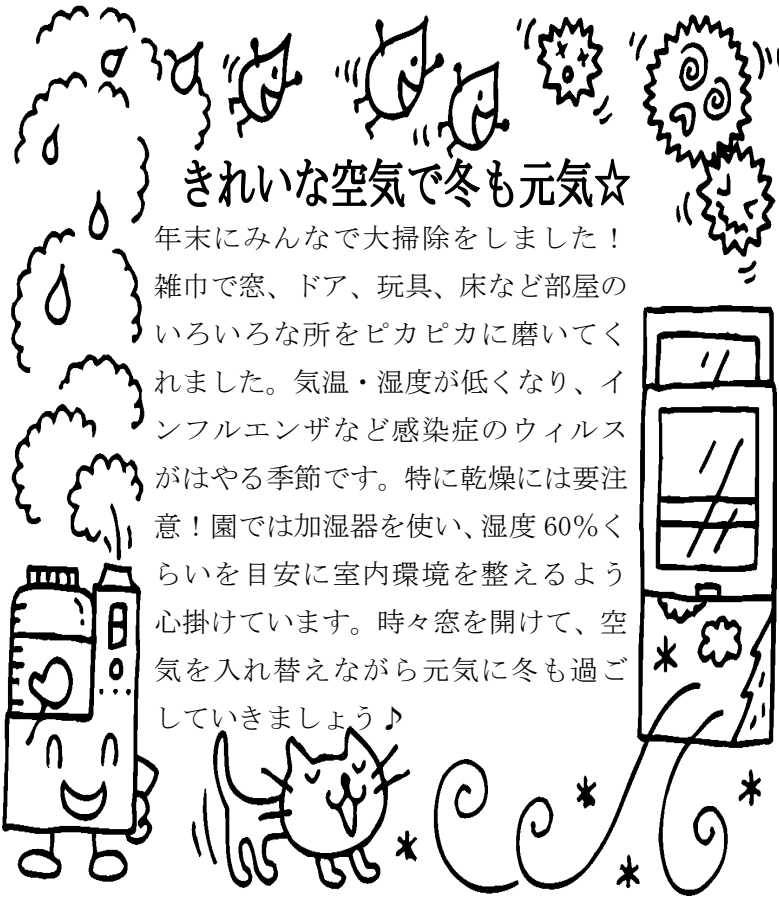 きれいな空気で冬も元気☆
年末にみんなで大掃除をしました！
雑巾で窓、ドア、玩具、床など部屋の
いろいろな所をピカピカに磨いてく
れました。気温・湿度が低くなり、イ
ンフルエンザなど感染症のウィルス
がはやる季節です。特に乾燥には要注
意！園では加湿器を使い、湿度 60%く
らいを目安に室内環境を整えるよう
心掛けています。時々窓を開けて、空
気を入れ替えながら元気に冬も過ご
していきましょう♪